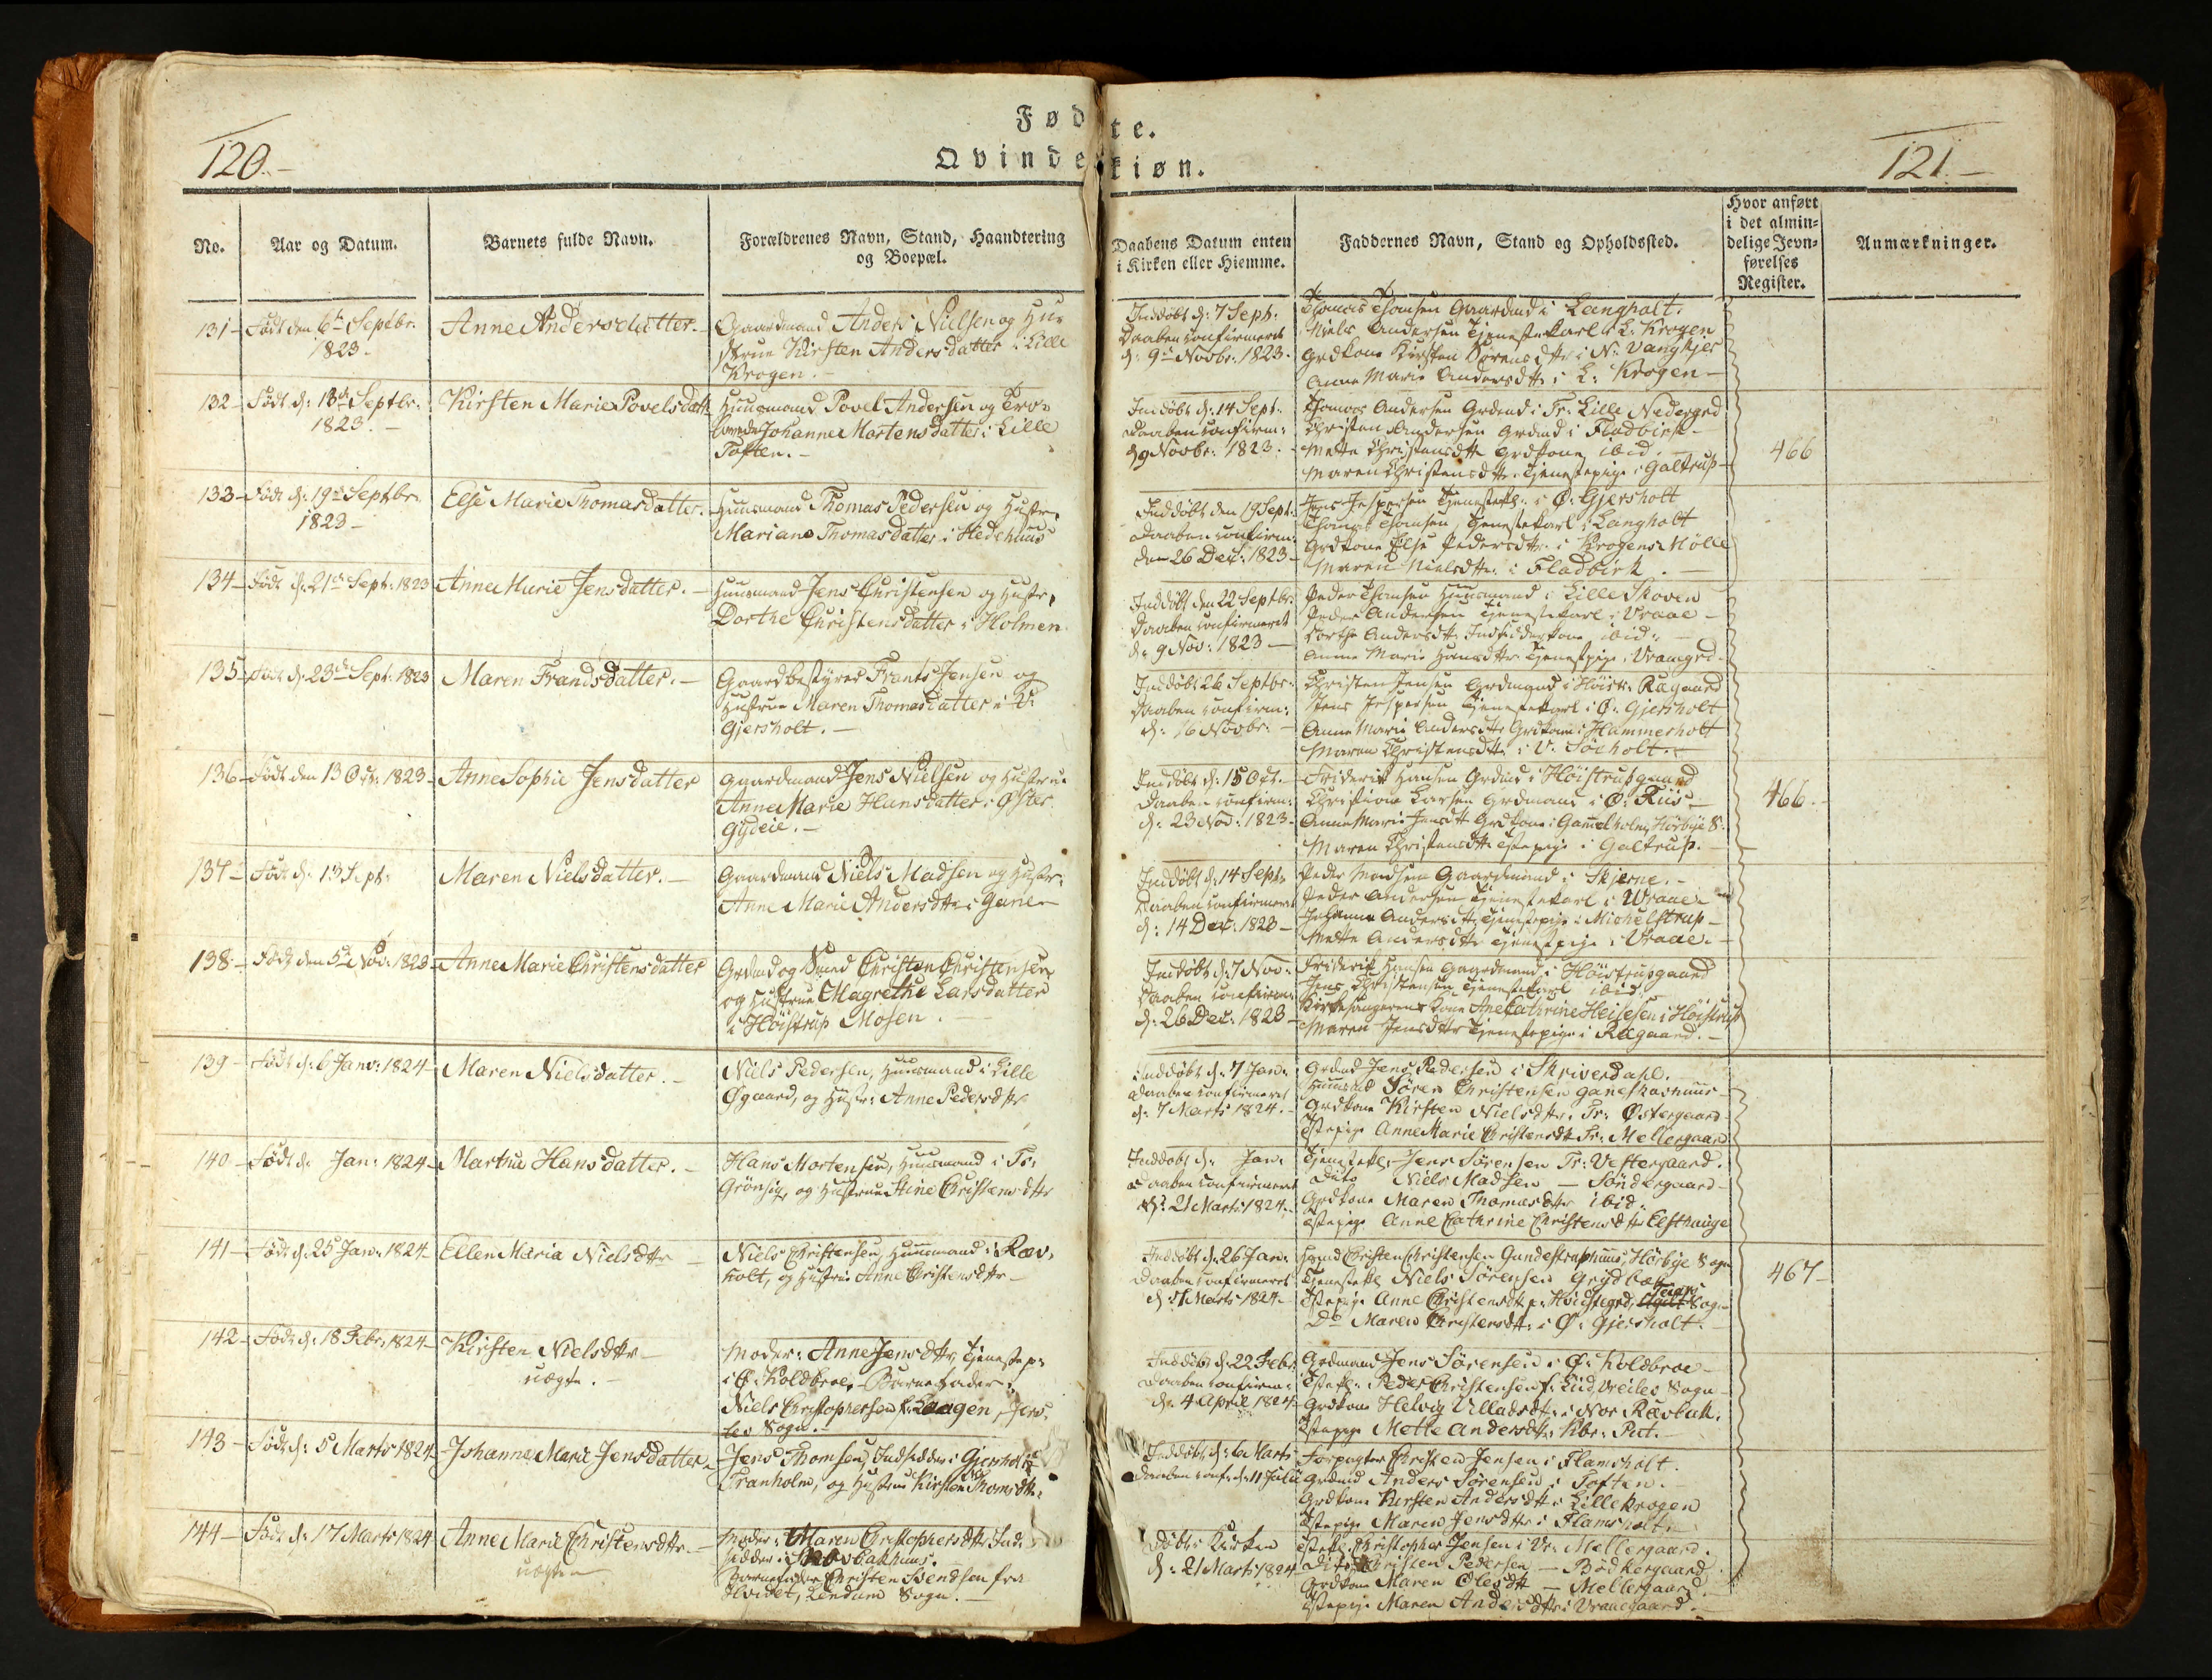 Fødte.
Qvindekiøn.
120.-
121.-
No.
Aar og Datum.
Barnets fulde Navn.
Forældrenes Navn, Stand, Haandtering
og Boepæl.
Daabens Datum enten
i Kirken eller Hiemme.
Faddernes Navn, Stand og Opholdssted.
Hvor anført
i det almin-
delige Jevn-
førelses
Register.
Anmærkninger.
131- Født den 6te Septbr.
1823-
Anne Andersdatter.-
Gaardmand Anders Nielsen og Hu-
strue Kirsten Andersdatter i Lille
Krogen.-
Inddøbt d: 7 Sept:
Daaben confirmeret
d: 9de Novbr: 1823.
Thomas Thomsen Gaardmd i Langholt.
Niels Andersen Tjenestekarl i L: Krogen
Grdkone Kirsten Sørensdtr i N: Vangkjer
Anne Marie Andersdtr i L: Krogen-
132- Født d: 13de Septbr:
1823.-
Kirsten Marie Povelsdatt
Huusmand Povel Andersen og Tro-
lovede Johanne Mortensdatter i Lille
Toften.-
Inddøbt d: 14 Sept:
Daaben confirm:
d 9 Novbr: 1823.
Thomas Andersen Grdmd i Fr: Lille Nedergrd
Christen Andersen Grdmd i Fladbirk-
Mette Christensdtr Grdkone ibid.-
Maren Christensdtr Tjenestepige i Galtrup-
466
133- Født d: 19de Septbr.
1823-
Else Marie Thomasdatter.
Huusmand Thomas Pedersen og Hustr.
Mariane Thomasdatter i Hedehuus
Inddøbt den 19 Sept:
Daaben confirm:
den 26 Dec: 1823-
Jens Jespersen Tjenestekl: i Ø: Gjersholt
Thomas Thomsen, Tjenestekarl i Langholt
Grdkone Else Pedersdtr i Krogens Mølle
Maren Nielsdtr i Fladbirk.-
134- Født d: 21de Sept: 1823
Anne Marie Jensdatter.-
Huusmand Jens Christensen og Hustr.
Dorthe Christensdatter i Holmen
Inddøbt den 22 Septbr:
Daaben confirmeret
d: 9 Nov: 1823-
Peder Thomsen Huusmand i Lille Skoven
Peder Andersen Tjenestekarl i Vraae-
Dorthe Andersdtr Indsidderkone ibid:-
Anne Marie Hansdtr Tjenestpige Vraaegrd-
135- Født d: 23de Sept: 1823
Maren Frandsdatter.-
Gaardbestyrer Frants Jensen og
Hustrue Maren Thomasdatter i V:
Gjersholt.-
Inddøbt 26 Septbr:
Daaben confirm:
d: 16 Novbr:-
Christen Jensen Grdmand i Høistr: Raagaard
Jens Jespersen Tjenestekarl i Ø: Gjersholt
Anne Marie Andersdtr Grdkone i Hammerholt
Maren Christensdtr i V: Søeholt.-
136- Født den 13 Oct: 1823-
Anne Sophie Jensdatter
Gaardmand Jens Nielsen og Hustrue
Anne Marie Hansdatter i Øster
Gydeie.-
Inddøbt d: 15 Oct.
Daaben confirm:
d: 23 Nov: 1823-
Friderik Hansen Grdmd i Høistrupgaard
Christian Larsen Grdmand i Ø: Riis-
Anne Marie Jensdtr Grdkone i Gamelholm, Hørbye S:
Maren Christensdtr Tstepige i Galtrup.-
466.-
137- Født d: 13 Sept:
Maren Nielsdatter.-
Gaardmand Niels Madsen og Hustr:
Anne Marie Andersdtr i Gane-
Inddøbt d: 14 Sept:
Daaben confirmeret
d: 14 Dec: 1823-
Peder Madsen Gaardmand i Skjerne.-
Peder Andersen Tjenestekarl i Vraae
Johanne Andersdtr Tjenstepige i Michelstrup-
Mette Andersdtr Tjenestpige i Vraae.-
138- Født den 5te Nov: 1823-
Anne Marie Christensdatter
Grdmd og Smed Christen Christensen
og Hustrue Magrethe Larsdatter
i Høistrup Mosen.-
Inddøbt d: 7 Nov:
Daaben confirm:
d: 26 Dec: 1823-
Friderik Hansen Gaardmand i Høistrupgaard
Jens Christensen Tjenestekarl ibid.
Kirkesangerens Kone Ane Cathrine Heiesen i Høistrup
Maren Jensdtr Tjenestepige i Ragaard.-
139- Født d: 6 Janv: 1824-
Maren Nielsdatter.-
Niels Pedersen, Huusmand i Lille
Øgaard, og Hustr: Anne Pedersdtr
Inddøbt d: 7 Jan:
Daaben confirmeret
d: 7 Marts 1824.-
Grdmd Jens Pedersen i Skriverdahl.-
Huusmd Søren Christensen Ganeskovhuus-
Grdkone Kirsten Nielsdtr Fr: Østergaard-
Tstepige Anne Marie Christensdtr Fr: Mellergaar
140- Født d: Jan: 1824-
Martha Hansdatter.-
Hans Mortensen, Huusmand i Fr:
Grönsig, og Hustrue Stine Christensdtr
Inddøbt d: Jan:
Daaben confirmeret
d: 21 Marts 1824.-
Tjenestekl: Jens Sørensen Fr: Vestergaard.
Dito Niels Madsen - Söndergaard-
Grdkone Maren Thomasdtr ibid:
Tstepige Anne Cathrine Christensdtr Elsthauge
141- Født d: 25 Jan: 1824-
Ellen Maria Nielsdtr-
Niels Christensen, Huusmand i Ræv-
holt, og Hustrue Anne Christensdtr-
Inddøbt d: 26 Jan:
Daaben confirmeret
d: 7 Marts 1824-
Hsmd Christen Christensen Gundestruphuus, Hørbye Sogn
Tjenestekl Niels Sørensen Grydbæk
Tstepige Anne Christensdtr p: Høiestegrd, Sogn
Do Maren Christensdtr i Ø: Gjersholt.-
467-
142- Født d: 18 Febr: 1824-
Kirsten Nielsdtr-
uægte.-
Moder: Anne Jensdtr, Tjenestep:
i Ø: Koldbroe,- Barnefader:
Niels Christophersen f: Haagen, Jers-
lev Sogn.-
Inddöbt d: 22 Febr.
Daaben confirm:
d: 4 April 1824-
Grdmand Jens Sørensen i Ø: Koldbroe-
Tstekl: Peder Christensen f: Lid, Vreilev Sogn-
Grdkone Helvig Villadsdtr i Nor Rævbak.
Tstepige Mette Andersdtr, Kbr: Put.-
143- Født d: 5 Marts 1824-
Johanne Marie Jensdatter-
Jens Thomsen, Indsidder i Gjersholt
Tranholm, og Hustrue Kirsten Thomsdtr.
Inddøbt d: 6 Marts
Daaben conf: d: 11 Julii
Forpagter Christen Jensen i Flamsholt.
Grdmd Anders Sørensen i Toften.-
Grdkone Kirsten Andersdtr i Lille Krogen
Tstepige Maren Jensdtr i Flamsholt.
144- Født d: 17 Marts 1824
Anne Marie Christensdtr.-
uægte-
Moder: Maren Christophersdtr Ind-
sidder i bakhuus.-
Barnefader Christen Svendsen fra
Hvidet, Lendum Sogn.-
Døbt i Kirken
d: 21 Marts 1824
Tstekl. Christopher Jensen i Vr: Mellergaard.
Dito Christen Pedersen - Bødkergaard.
Grdkone Maren Olesdtr - Mellergaard.
Tstepige Maren Andersdtr i Vraaegaard.-